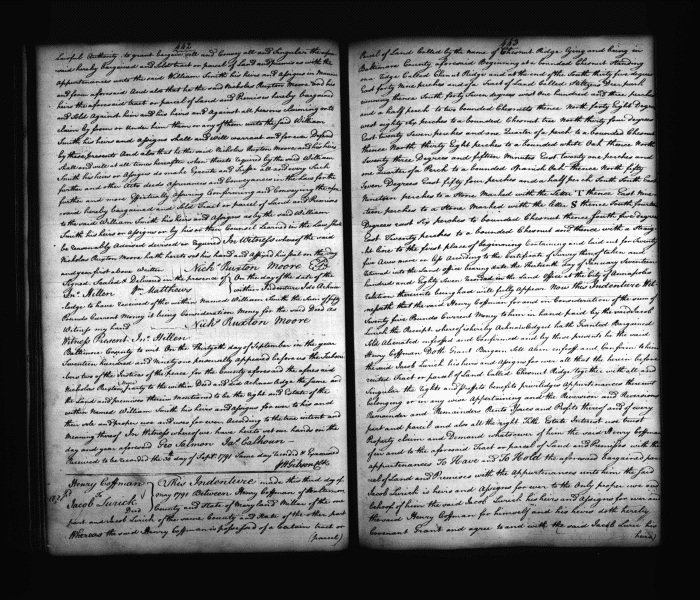 442
Lawful Authority to grant bargain sell and Convey all and Singular the afore
said hereby bargained and Sold tract or parcel of Land and premises with the
appurtenances unto the said William Smith his heirs and assigns in Manner
and form aforesaid And also that he the said Nicholas Ruxton Moore and his
heirs the aforesaid tract or parcel of Land and Premises hereby bargained
and Sold Against him and his heirs and against all persons Claiming or to
claim by from or under him them or any of them unto the said William
Smith his heirs and assigns shall and will warrant and forever Defend
by these presents And also that he the said Nicholas Ruxton Moore and his heirs
shall and will at all times hereafter when thereto required by the said William
Smith his heirs or Assigns do make Execute and Suffer all and every Such
further and other Acts deeds Assurances and Conveyances in the Law for the
further and more effectually assuring Confirming and Conveying the afore
said hereby bargained and Sold Tract or parcel of Land and Premises
to the said William Smith his heirs and Assigns as by the said William
Smith his heirs or Assigns or by his or their Counsel Learned in the Law Shall
be reasonably Advised devised or required In Witness whereof the said
Nicholas Ruxton Moore hath hereto set his hand and Affixed his seal on the day
and year first above Written Nichs Ruxton Moore
Signed Sealed & Delivered in the presence of On the day of the date of the
Jno. Hellen Wm Matthews within Indenture I do Acknow
ledge to have received of the within Named William Smith the Sum of fifty
Pounds Current Money it being Consideration Money for the said Deed as
Witness my hand Nichs Ruxton Moore
Witness Present Jno. Hellen
Baltimore County to wit On the thirtyeth day of September in the year
Seventeen hundred and Ninety one personally appeared before us the Subscri
bers two of the Justices of the peace for the County aforesaid the aforesaid
Nicholas Ruxton party to the within Deed and did Acknowledge the same and
the Land and premises therein Mentioned to be the right and Estate of the
within Named William Smith his heirs and assigns for ever to his and
their sole and proper use forever according to the true intent and
Meaning thereof In Witness whereof we have hereto set our hands on the
day and year aforesaid Geo Salmon Jas. Calhoun
Received to be recorded the 30th day of Septr. 1791 same day recorded & Examined
Henry Coffman
To
Jacob Lurick
Deed
This Indenture made this third day of
May 1791 Between Henry Coffman of Baltimore
County and State of Maryland of the one
part and Jacob Lurick of the same County and State of the other part
Whereas the said Henry Coffman is possessed of a Certain tract or
(parcel)
443
Parcel of Land Called by the name of Chesnut Ridge lying and being in
Baltimore County aforesaid Beginning at a bounded Chesnut Standing
on a Ridge Called Chesnut Ridge and at the end of the South thirty five degrees
East forty Nine perches of a Tract of Land Called Deer park
running thence South forty two degrees West one hundred and three perches
and a half perch to two bounded Chesnuts thence North forty Eight Degrees
West eighty six perches to a bounded Chesnut tree North thirty four degrees
East twenty Seven perches and one Quarter of a perch to a bounded Chesnut
thence North thirty Eight perches to a bounded white Oak thence North
Seventy three Degrees and fifteen Minutes East twenty one perches and
one Quarter of a Perch to a bounded Spanish Oak thence North fifty
Seven Degrees East fifty four perches and a half perch South East
Nineteen perches to a Stone Marked with the Letter T thence East Nine
teen perches to a Stone Marked with the letter S thence South fourteen
degrees East Six perches to bounded Chesnut thence South five degrees
East Twenty perches to a bounded Chesnut and thence with a Straight
line to the first place of beginning Containing and laid out for Twenty
five Acres more or less According to the Certificate of Survey thereof taken and
returned into the Land office bearing date the Thirteenth day of February Seventeen
hundred and Eighty Seven in the Land Office at the City of Annapolis
relation thereunto being had will fully appear Now this Indenture Wit-
nesseth that the said Henry Coffman for and in Consideration of the sum of
Twenty five Pounds Current Money to him in hand paid by the said Jacob
Lurick the Receipt whereof is hereby Acknowledged hath Granted Bargained
Sold Alienated enfeoffed and Confirmed and by these presents he the said
Henry Coffman Doth Grant Bargain Sell Alien enfeoff and Confirm to him
the said Jacob Lurick his heirs and Assigns for ever all that the herein before
recited Tract or parcel of Land Called Chesnut Ridge Together with all and
Singular the Rights and Profits benefits priviledges Appurtenances thereunto
belonging or in any wise Appertaining and the Reversion and Reversions
Remainder and Remainders Rents Issues and Profits thereof and of every
part and parcel and also all the right Title Estate Interest use trust
Property claim and Demand whatsoever of him the said Henry Coffman
of in and to the aforesaid Tract or parcel of Land and Premises with the
appurtenances To Have and To Hold the aforesaid bargained par
cel of Land and Premises with the Appurtenances unto him the said
Jacob Lurick his heirs and Assigns for ever to the Only proper use and
behoof of him the said Jacob Lurick his heirs and Assigns for ever and
the said Henry Coffman for himself and his heirs doth hereby
Covenant Grant and agree to and with the said Jacob Lurick his
heirs)